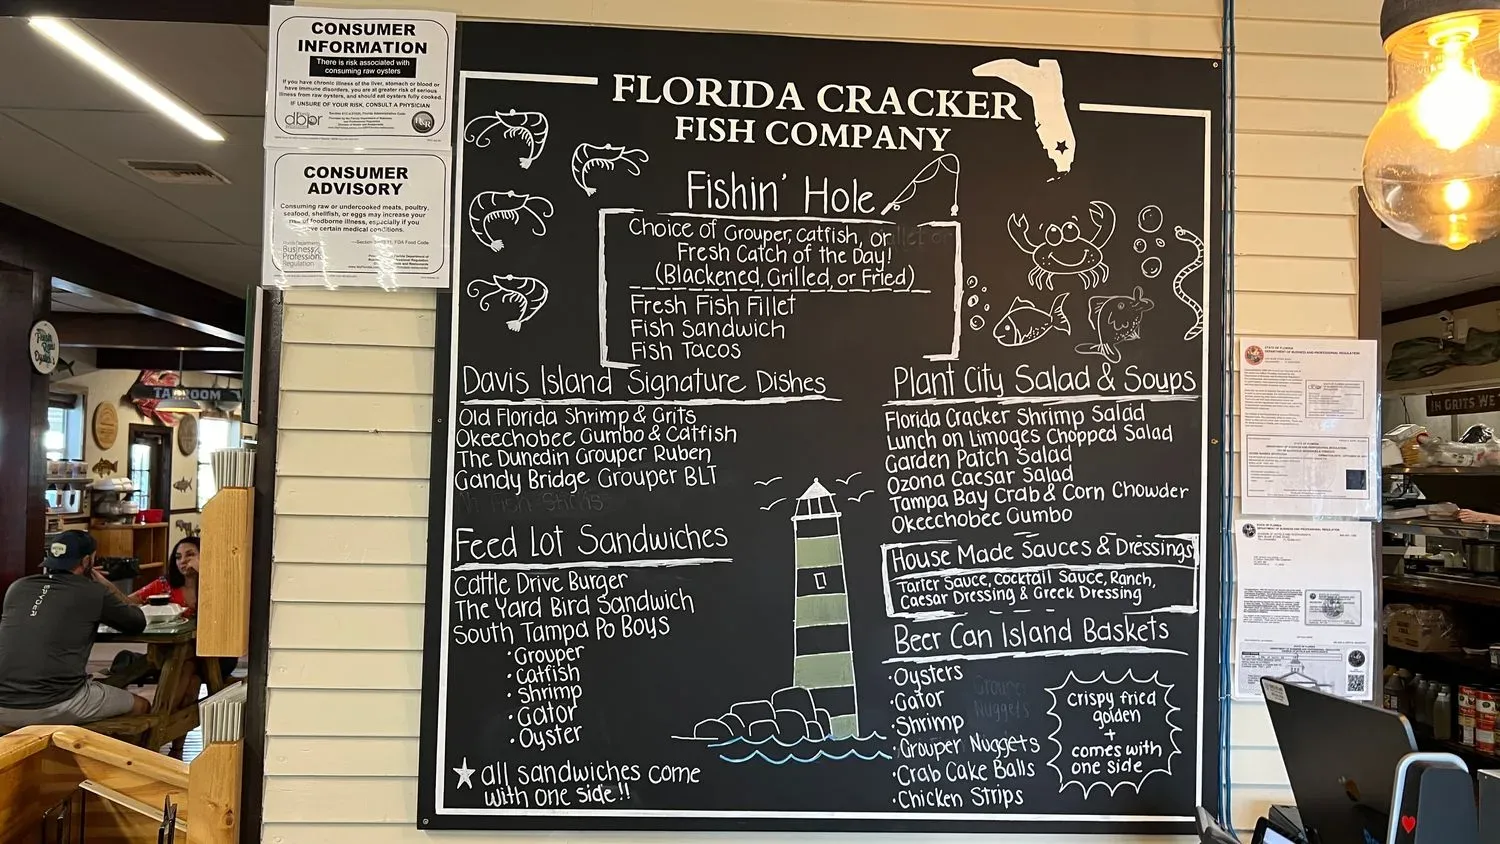 CONSUMER
INFORMATION
There is risk associated with
consuming raw oysters
If you have chronic illness of the liver, stomach or blood or
have immune disorders, you are at greater risk of serious
illness from raw oysters, and should eat oysters fully cooked.
IF UNSURE OF YOUR RISK, CONSULT A PHYSICIAN
dbpr
H&R
CONSUMER
ADVISORY
Consuming raw or undercooked meats, poultry,
seafood, shellfish, or eggs may increase your
risk of foodborne illness, especially if you
have certain medical conditions.
FLORIDA CRACKER
FISH COMPANY
Fishin' Hole
Choice of Grouper, Catfish, or
Fresh Catch of the Day!
(Blackened, Grilled, or Fried)
Fresh Fish Fillet
Fish Sandwich
Fish Tacos
Davis Island Signature Dishes
Old Florida Shrimp & Grits
Okeechobee Gumbo & Catfish
The Dunedin Grouper Ruben
Gandy Bridge Grouper BLT
Feed Lot Sandwiches
Cattle Drive Burger
The Yard Bird Sandwich
South Tampa Po Boys
• Grouper
• Catfish
• Shrimp
• Gator
• Oyster
all sandwiches come
with one side!!
Plant City Salad & Soups
Florida Cracker Shrimp Salad
Lunch on Limoges Chopped Salad
Garden Patch Salad
Ozona Caesar Salad
Tampa Bay Crab & Corn Chowder
Okeechobee Gumbo
House Made Sauces & Dressings
Tarter Sauce, Cocktail Sauce, Ranch,
Caesar Dressing & Greek Dressing
Beer Can Island Baskets
• Oysters
• Gator
• Shrimp
• Grouper Nuggets
• Crab Cake Balls
• Chicken Strips
Grouper
Nuggets
crispy fried
golden
+
comes with
one side
TAPROOM
SPYDER
IN GRITS WE